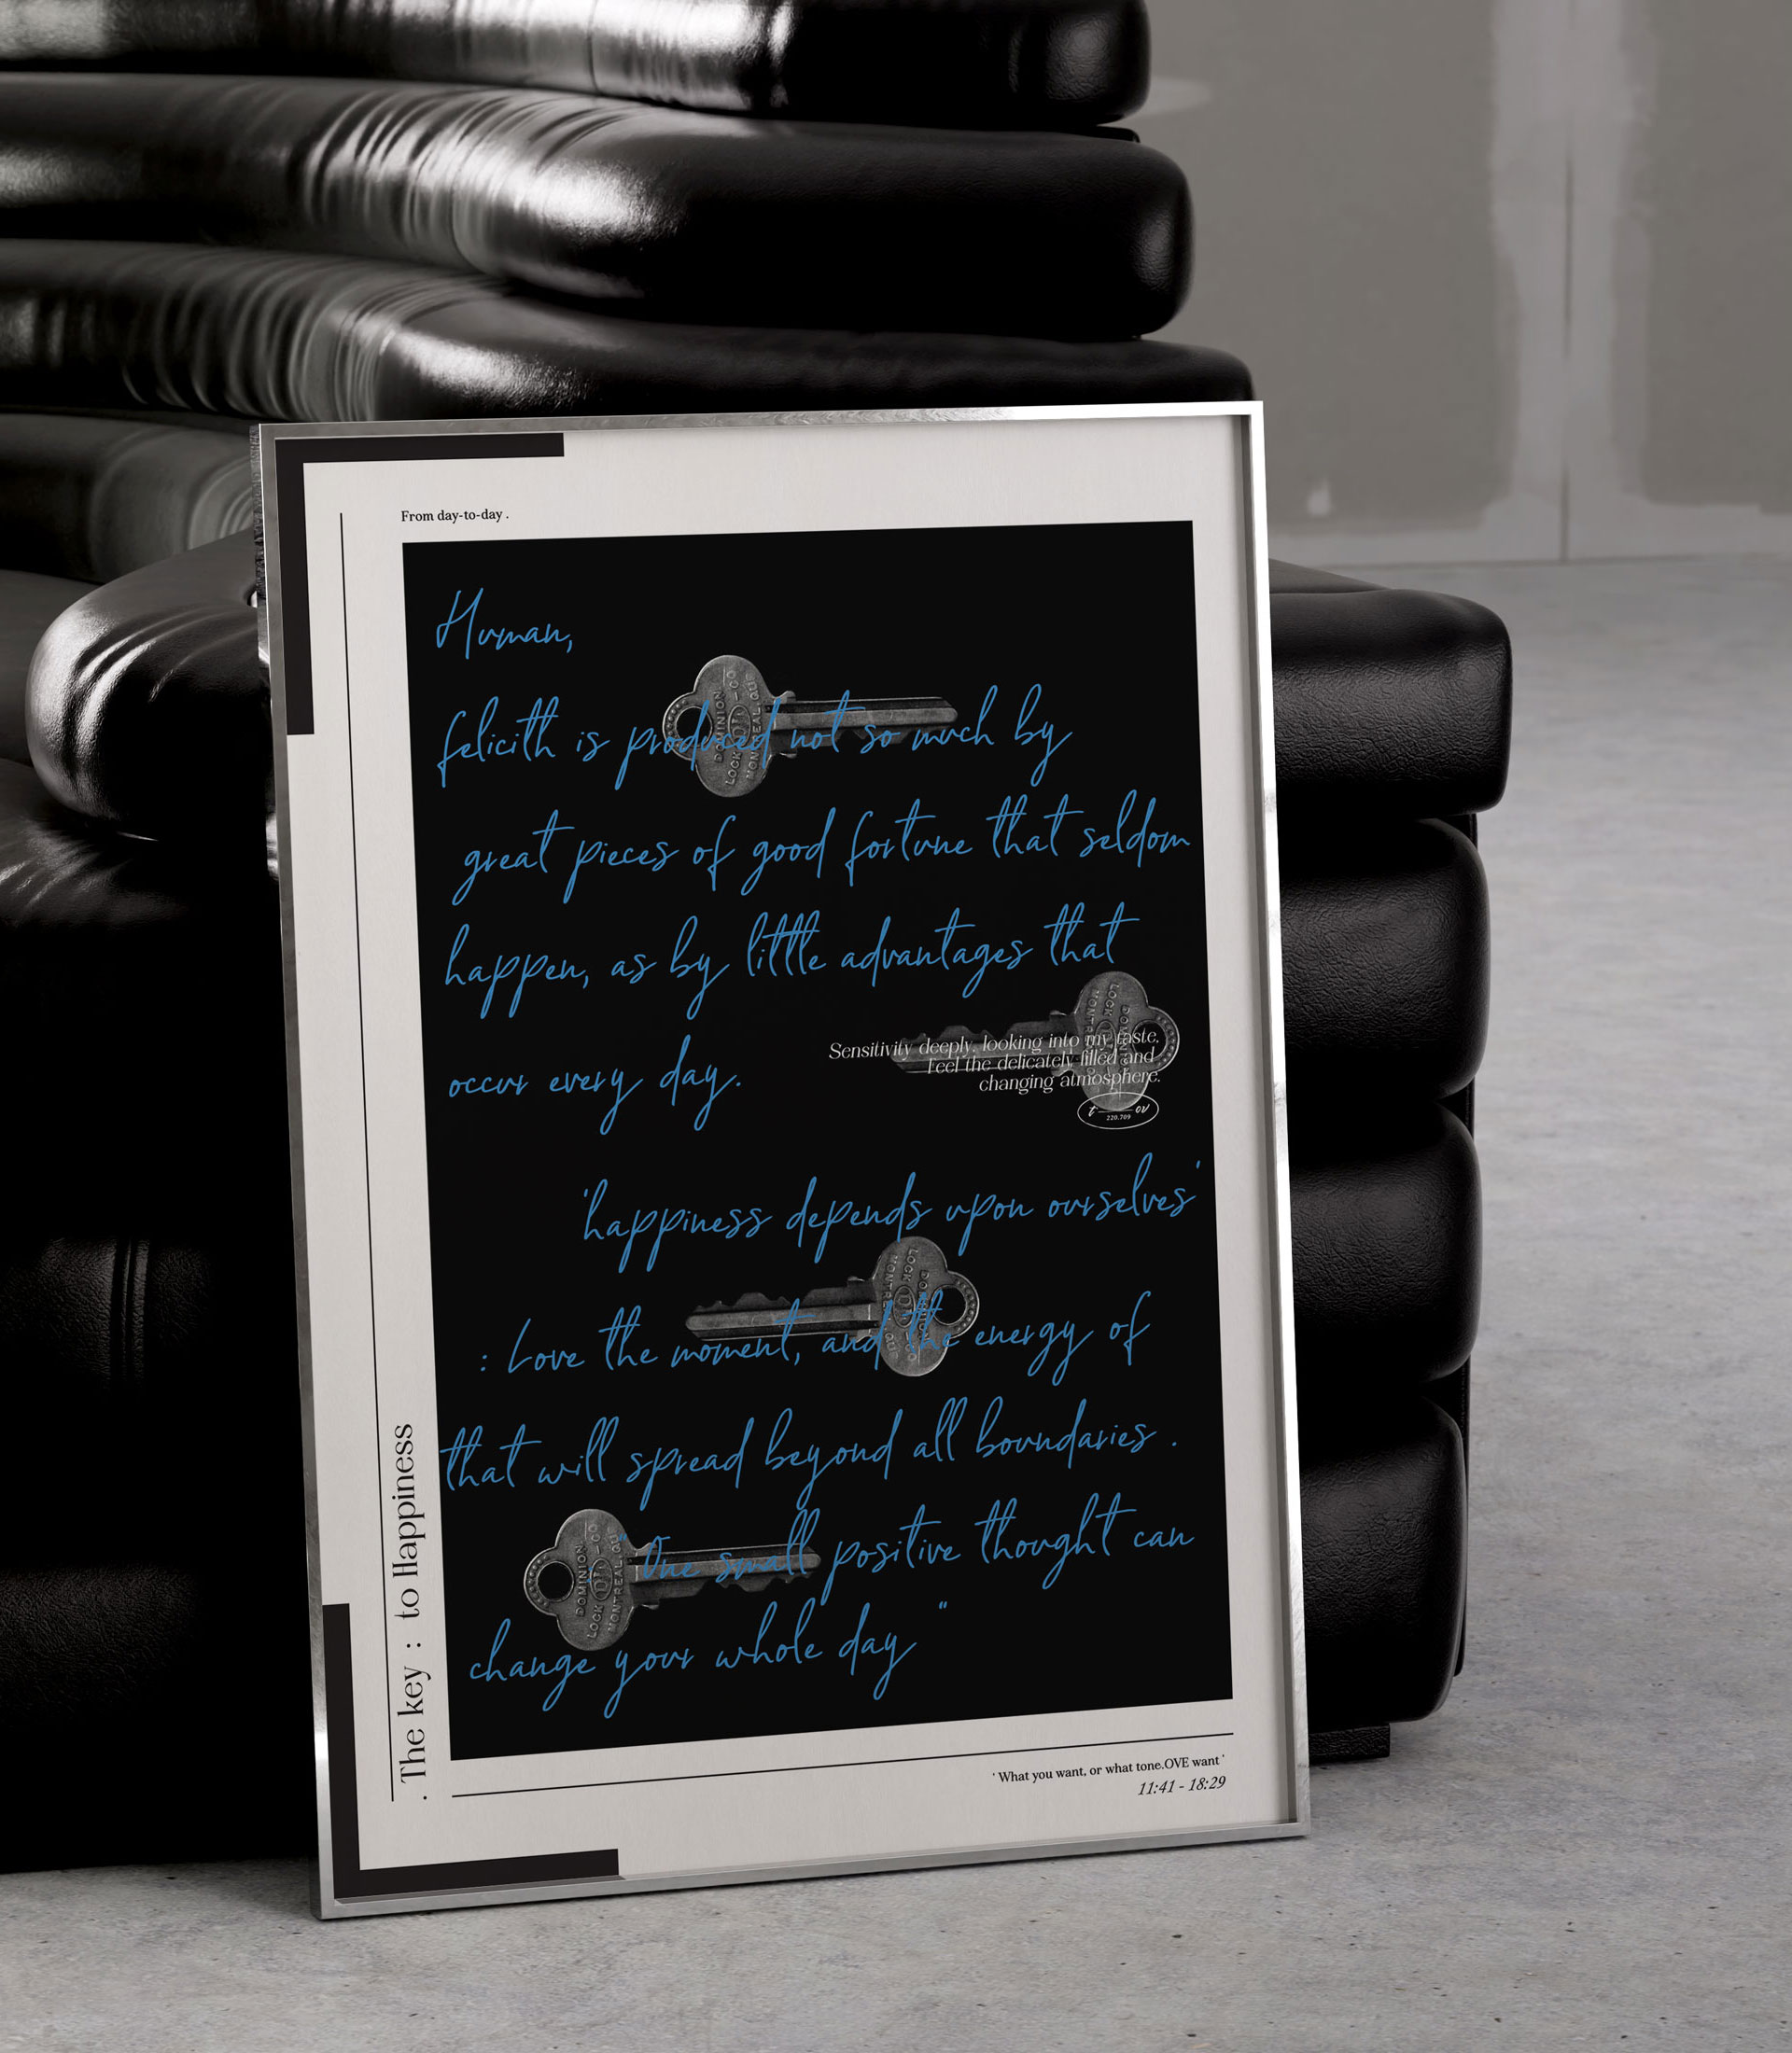 From day-to-day .
Human,
felicith is produced not so much by
great pieces of good fortune that seldom
happen, as by little advantages that
occur every day.
Sensitivity deeply, looking into my taste.
Feel the delicately filled and
changing atmosphere.
t ov
220.709
'happiness depends upon ourselves'
: Love the moment, and the energy of
that will spread beyond all boundaries .
" One small positive thought can
change your whole day "
. The key : to Happiness
' What you want, or what tone.OVE want '
11:41 - 18:29
DOMINION
LOCK -CO
MONTREAL QUE
LOCK
DOMINION
LOCK -CO
MONTREAL.QU